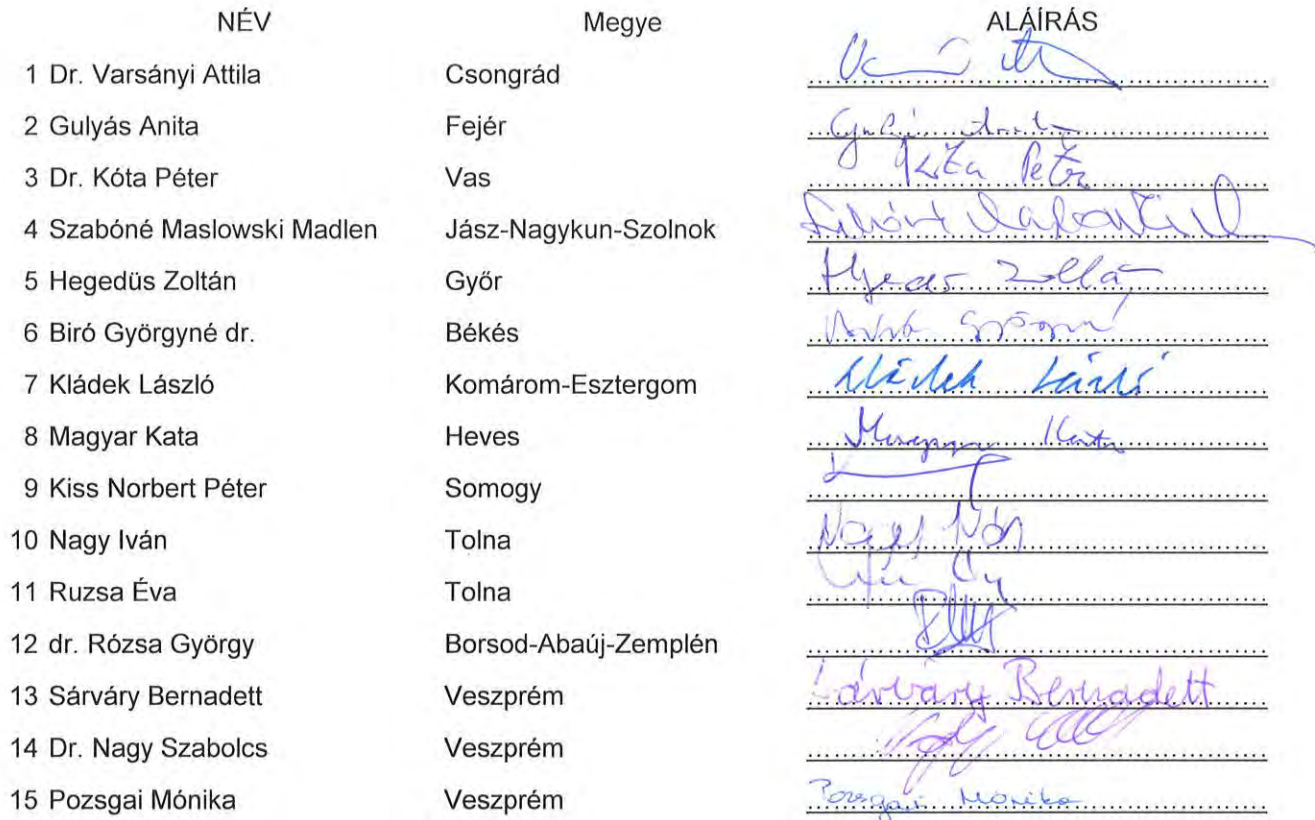 NÉV Megye ALÁÍRÁS
1 Dr. Varsányi Attila Csongrád
2 Gulyás Anita Fejér
3 Dr. Kóta Péter Vas Kóta Péter
4 Szabóné Maslowski Madlen Jász-Nagykun-Szolnok
5 Hegedüs Zoltán Győr
6 Biró Györgyné dr. Békés
7 Kládek László Komárom-Esztergom Kládek László
8 Magyar Kata Heves Magyar Kata
9 Kiss Norbert Péter Somogy
10 Nagy Iván Tolna Nagy Iván
11 Ruzsa Éva Tolna
12 dr. Rózsa György Borsod-Abaúj-Zemplén
13 Sárváry Bernadett Veszprém Sárváry Bernadett
14 Dr. Nagy Szabolcs Veszprém
15 Pozsgai Mónika Veszprém Pozsgai Mónika